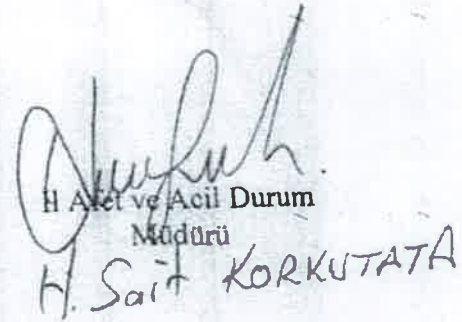 İl Afet ve Acil Durum
Müdürü
H. Sait KORKUTATA